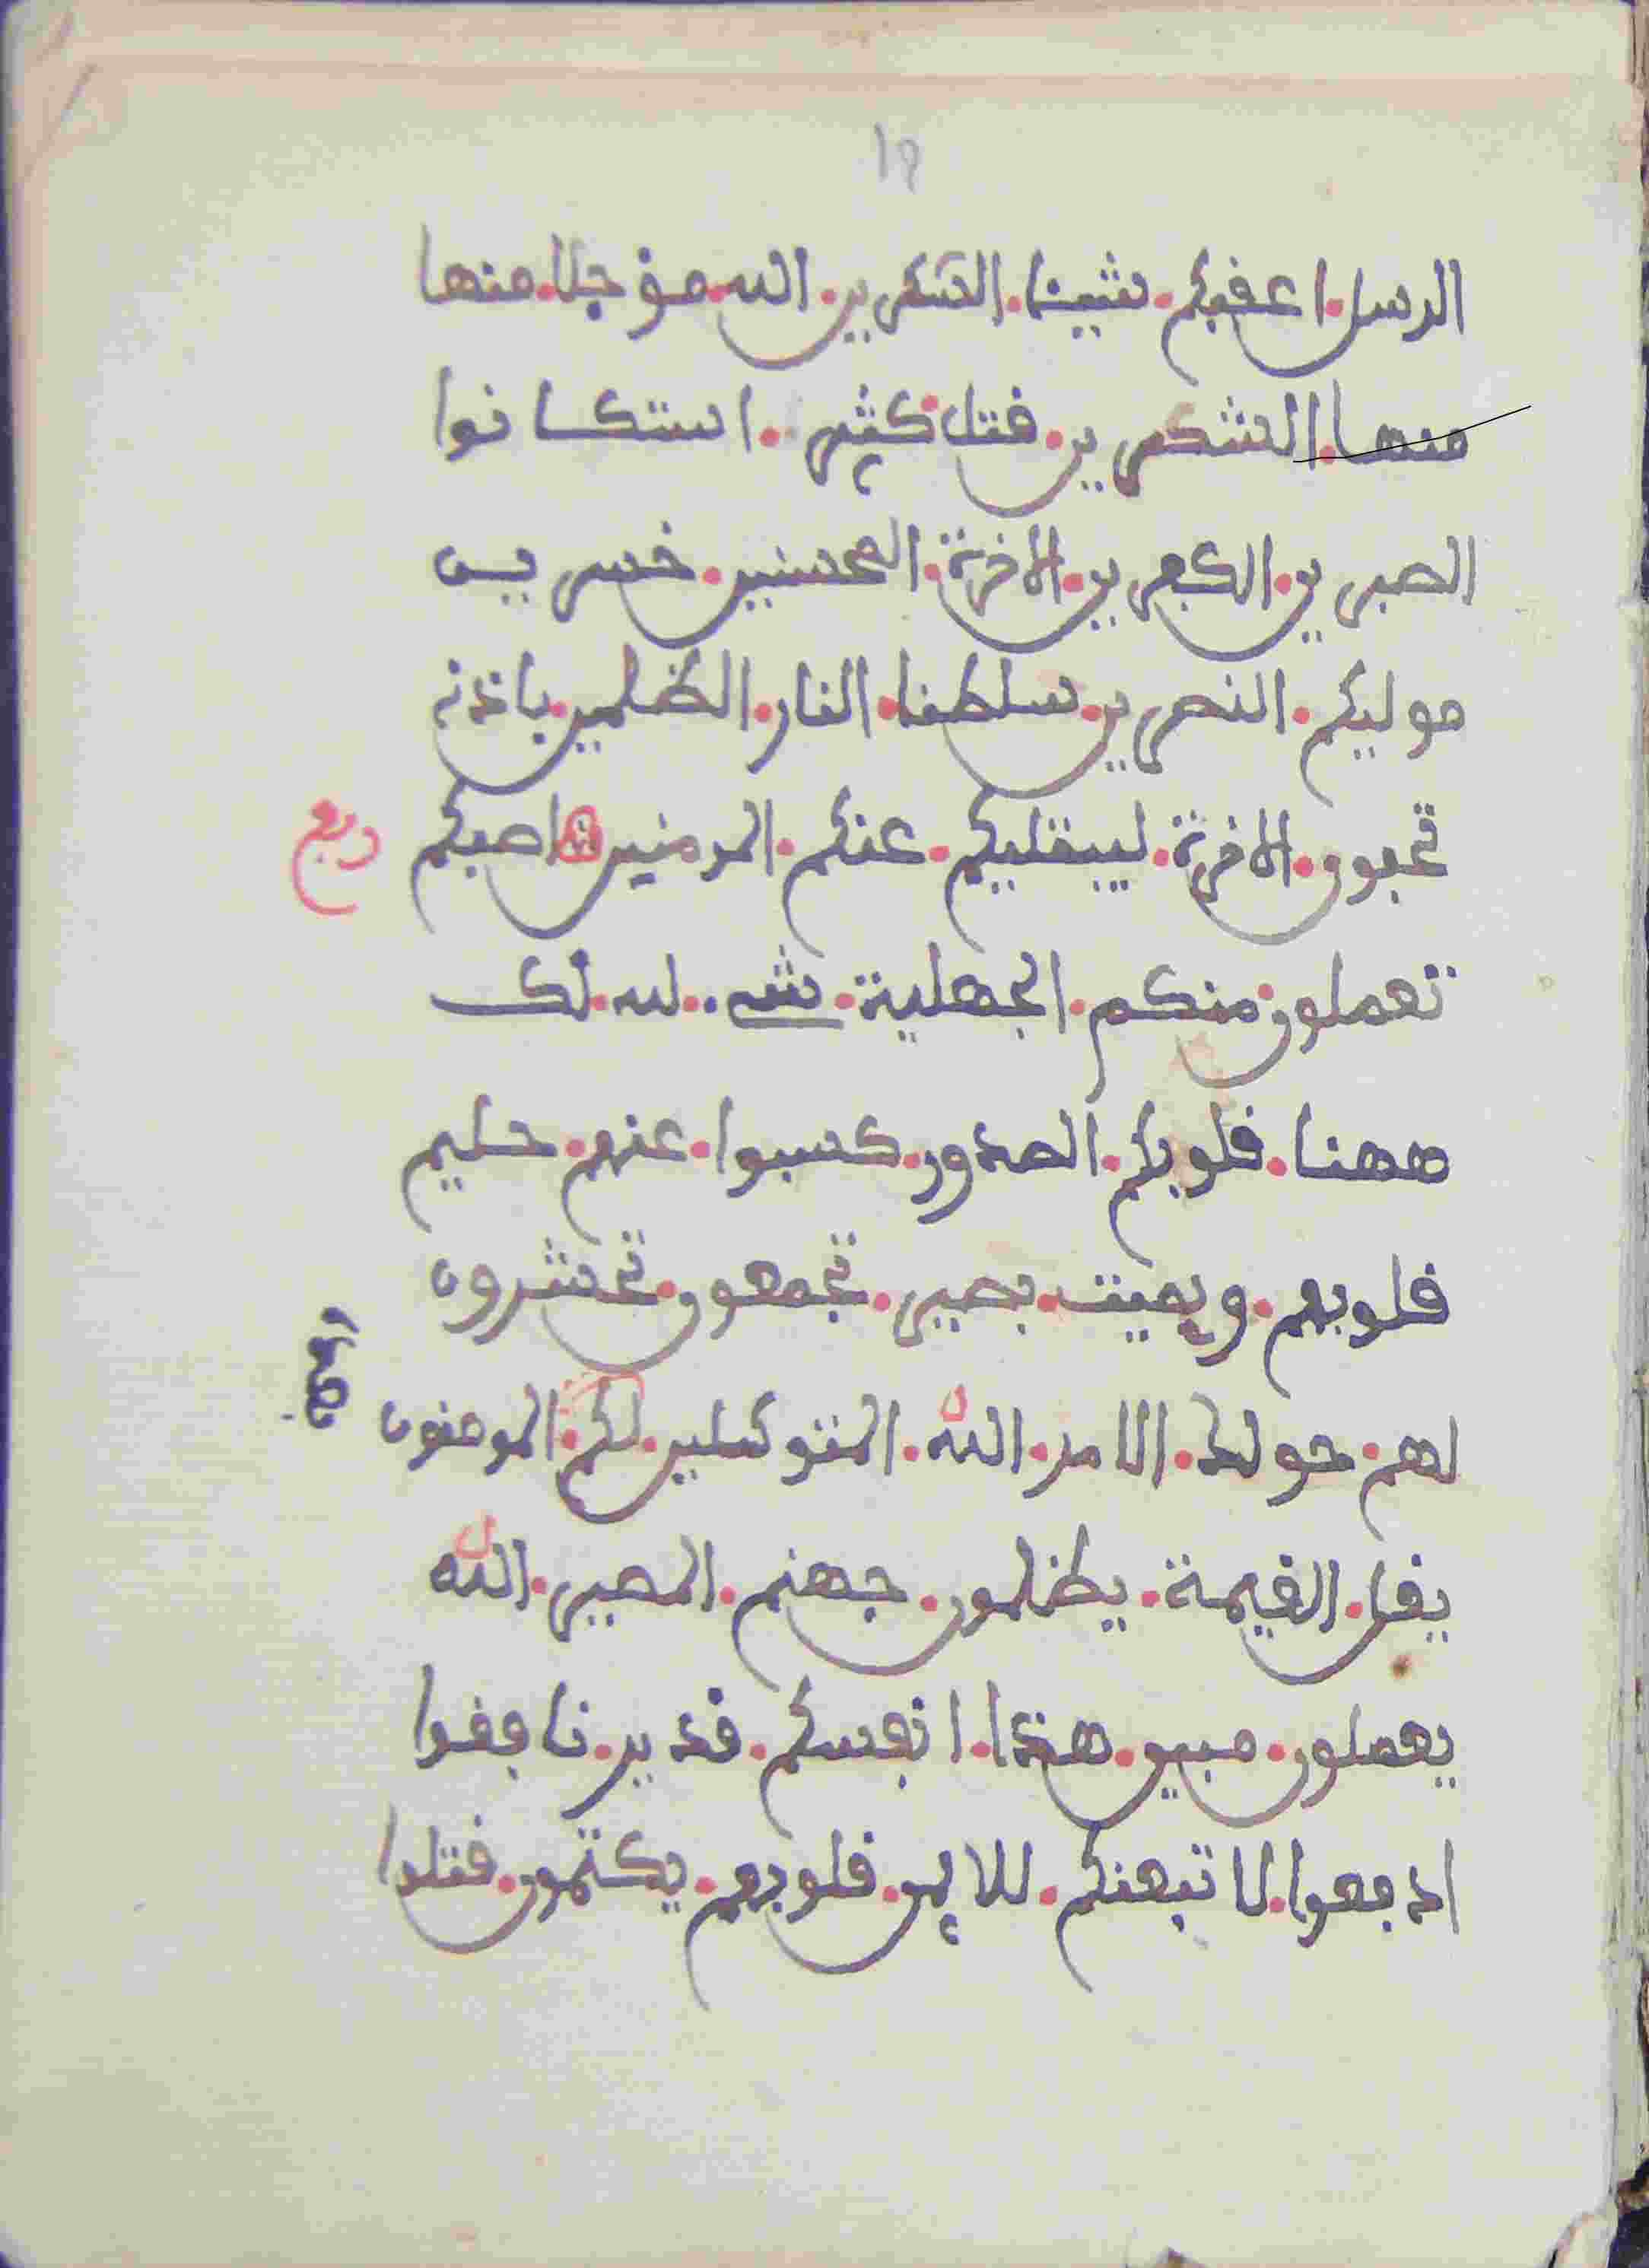 ١٩
الرسل. اعقبكم. شيئا. الشكرين. الله. مؤجلا. منها
منها. الشكرين. قتل. كثير. استكانوا
الصبرين. الكفرين. الاخرة. المحسنين. خسرين
موليكم. النصرين. سلطنا. النار. الظلمين. باذنه
تحبون. الاخرة. ليبتليكم. عنكم. المومنين اصبكم
ربع
تعملون. منكم. الجهلية. شے. لله. لك
ههنا. قلوبكم. الصدور. كسبوا. عنهم. حليم
قلوبهم. ويميت. بصير. تجمعون. تحشرون
لهم. حولك. الامر. الله. المتوكلين. لكم. المومنون
يغل. القيمة. يظلمون. جهنم. المصير. الله
يعملون. مبين. هذا. انفسكم. قدير. نافقوا
ادفعوا. لاتبعنكم. للايمن. قلوبهم. يكتمون. قتلوا